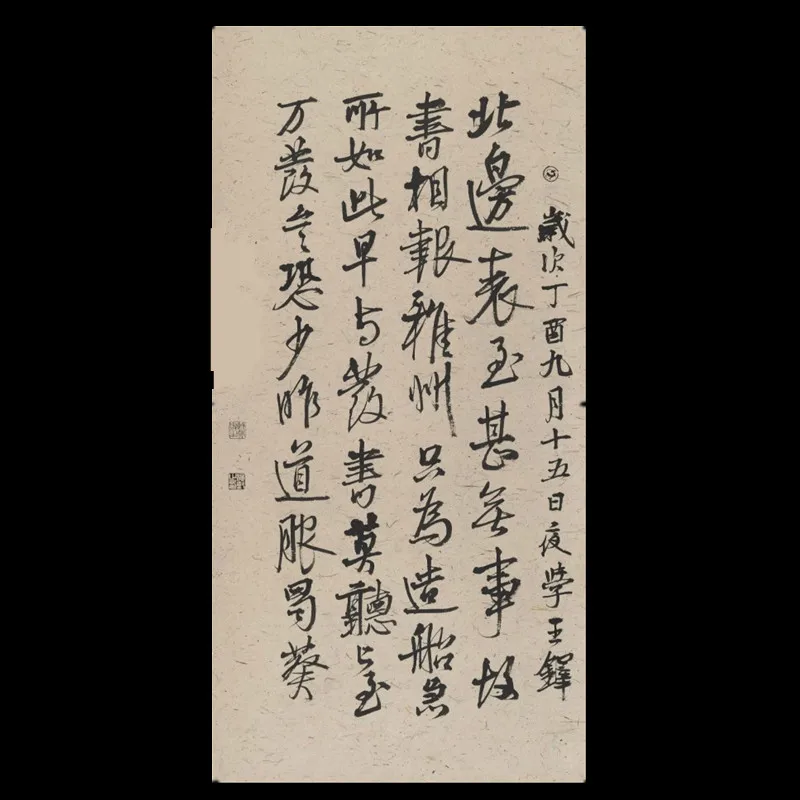 歲次丁酉九月十五日夜學王鐸
北邊表至甚無事故
書相報雅州只為造船急
所如此早与發書莫聽至
万發恐少昨道服蜀葵